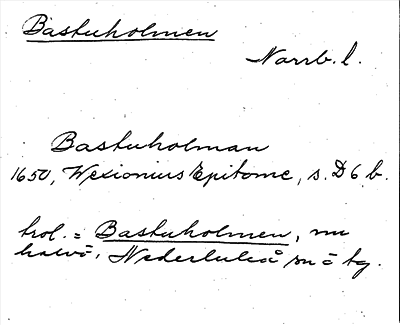 Bastuholmen
Norrb. l.
Bastuholman
1650, Wexionius Epitome, s. D 6 b.
trol. = Bastuholmen, nu
halvö, Nederluleå sn o tg.